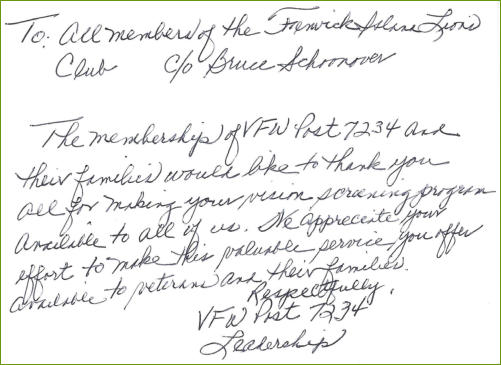 To: All members of the Fenwick Island Lions
Club c/o Bruce Schoonover
The membership of VFW Post 7234 and
their families would like to thank you
all for making your vision screening program
available to all of us. We appreciate your
effort to make this valuable service you offer
available to veterans and their families.
Respectfully,
VFW Post 7234
Leadership